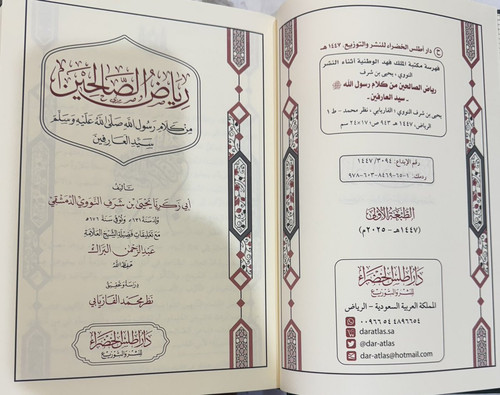 رِيَاضُ الصَّالِحِيْنَ
مِنْ كَلَامِ رَسُولِ اللهِ صَلَّى اللهُ عَلَيْهِ وَسَلَّمَ
سَيِّدِ العَارِفِيْنَ
تأليف
أبي زكريا يحيى بن شرف النووي الدمشقي
ولد سنة ٦٣١هـ وتوفي سنة ٦٧٦هـ
مع تعليقات فضيلة الشيخ العلامة
عبد الرحمن البراك
حفظه الله
دراسة وتحقيق
نظر محمد الفاريابي
دار أطلس الخضراء
للنشر والتوزيع
ح دار أطلس الخضراء للنشر والتوزيع، ١٤٤٧ هـ
فهرسة مكتبة الملك فهد الوطنية أثناء النشر
النووي ، يحيى بن شرف
رياض الصالحين من كلام رسول الله ﷺ
- سيد العارفين -
يحيى بن شرف النووي ؛ الفاريابي ، نظر محمد - ط ١
الرياض، ١٤٤٧ هـ ٩٤٣ ص ؛ ١٧×٢٤ سم
رقم الإيداع: ١٤٤٧/٣٠٩٤
ردمك: ١-٦٥-٨٤٦٩-٦٠٣-٩٧٨
الطبعة الأولى
(١٤٤٧هـ - ٢٠٢٥م)
دار أطلس الخضراء
للنشر والتوزيع
المملكة العربية السعودية - الرياض
٠٠٩٦٦ ٥٤ ٤٨٩٦٦٥٤
daratlas.sa
@dar-atlas
dar-atlas@hotmail.com